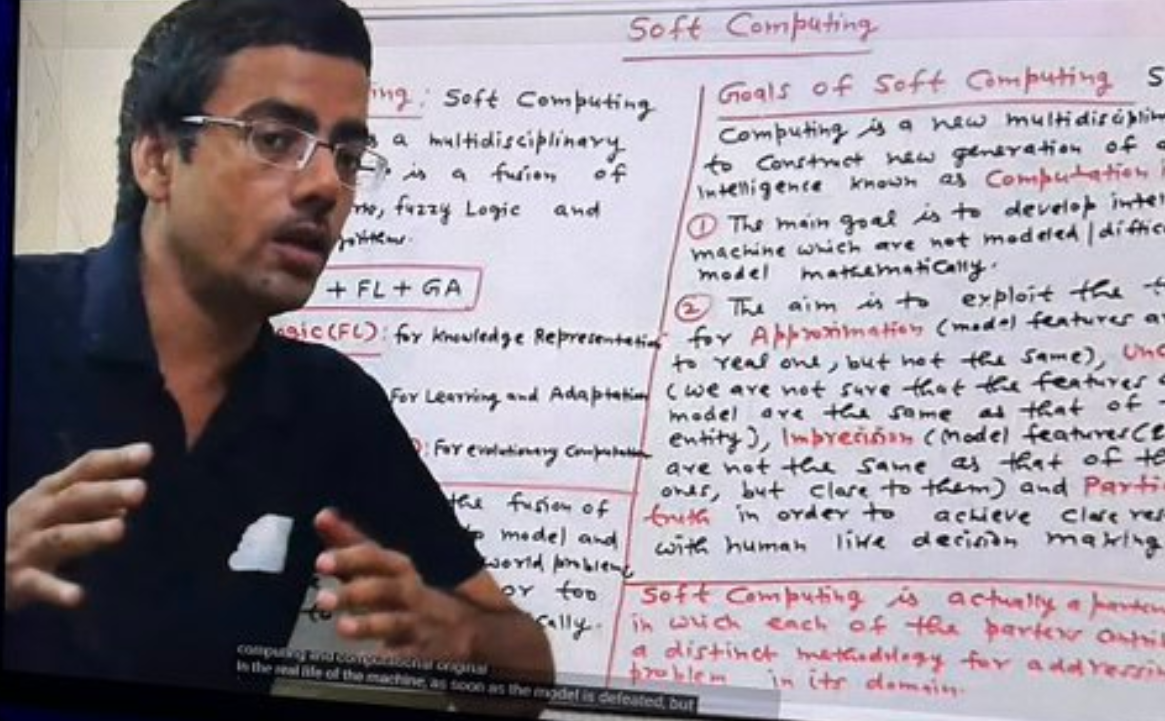 Soft Computing
ing: Soft Computing
a multidisciplinary
is a fusion of
fuzzy Logic and
+ FL + GA
ogic (FL): for Knowledge Representation
For Learning and Adaptation
: For evolutionary Computation
the fusion of
model and
world problem,
or too
to cally.
Goals of Soft Computing S
Computing is a new multidisciplin
to Construct new generation of
Intelligence known as Computation
① The main goal is to develop intel
machine which are not modeled / diffic
model mathematically.
② The aim is to exploit the t
for Approximation (model features a
to real one, but not the same), Unc
(we are not sure that the features
model are the same as that of
entity), Imprecision (Model features (
are not the same as that of th
ones, but close to them) and Parti
truth in order to achieve close res
with human like decision making
Soft Computing is actually a partn
in which each of the partners
a distinct methodology for addressin
problem in its domain.
computing and computational original
In the real life of the machine, as soon as the model is defeated, but